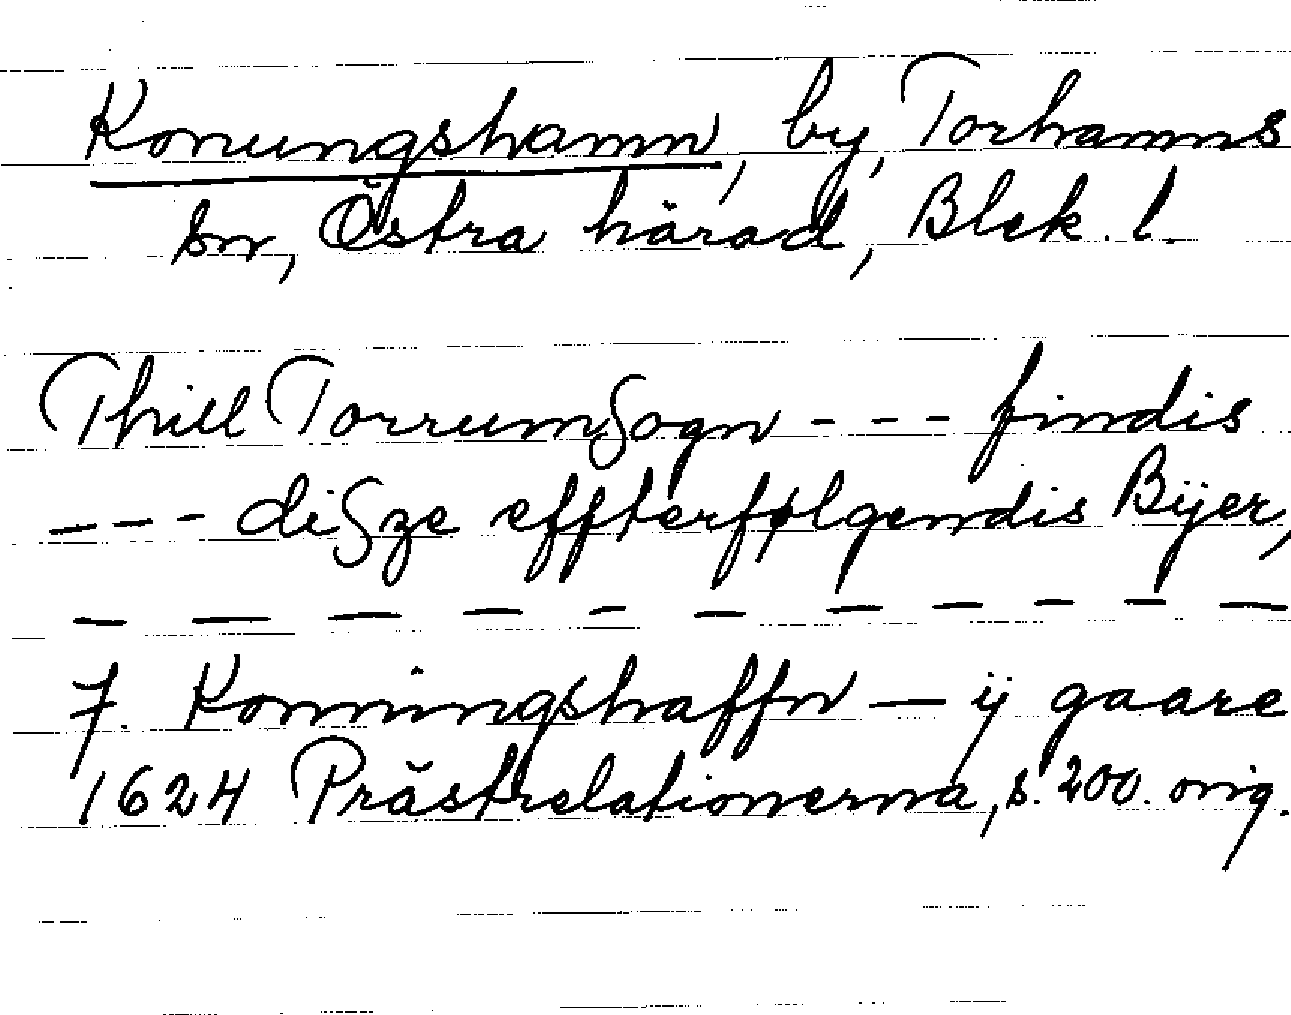 Konungshamn, by, Torhamns
sn, Östra härad, Blek. l.
Thill TorrumSogn - - - findis
- - - diSze effterfølgendis Bÿer,
— — — — — — — — — — —
7. Konningshaffn — ij gaare
1624 Prästrelationerna, s. 200. orig.